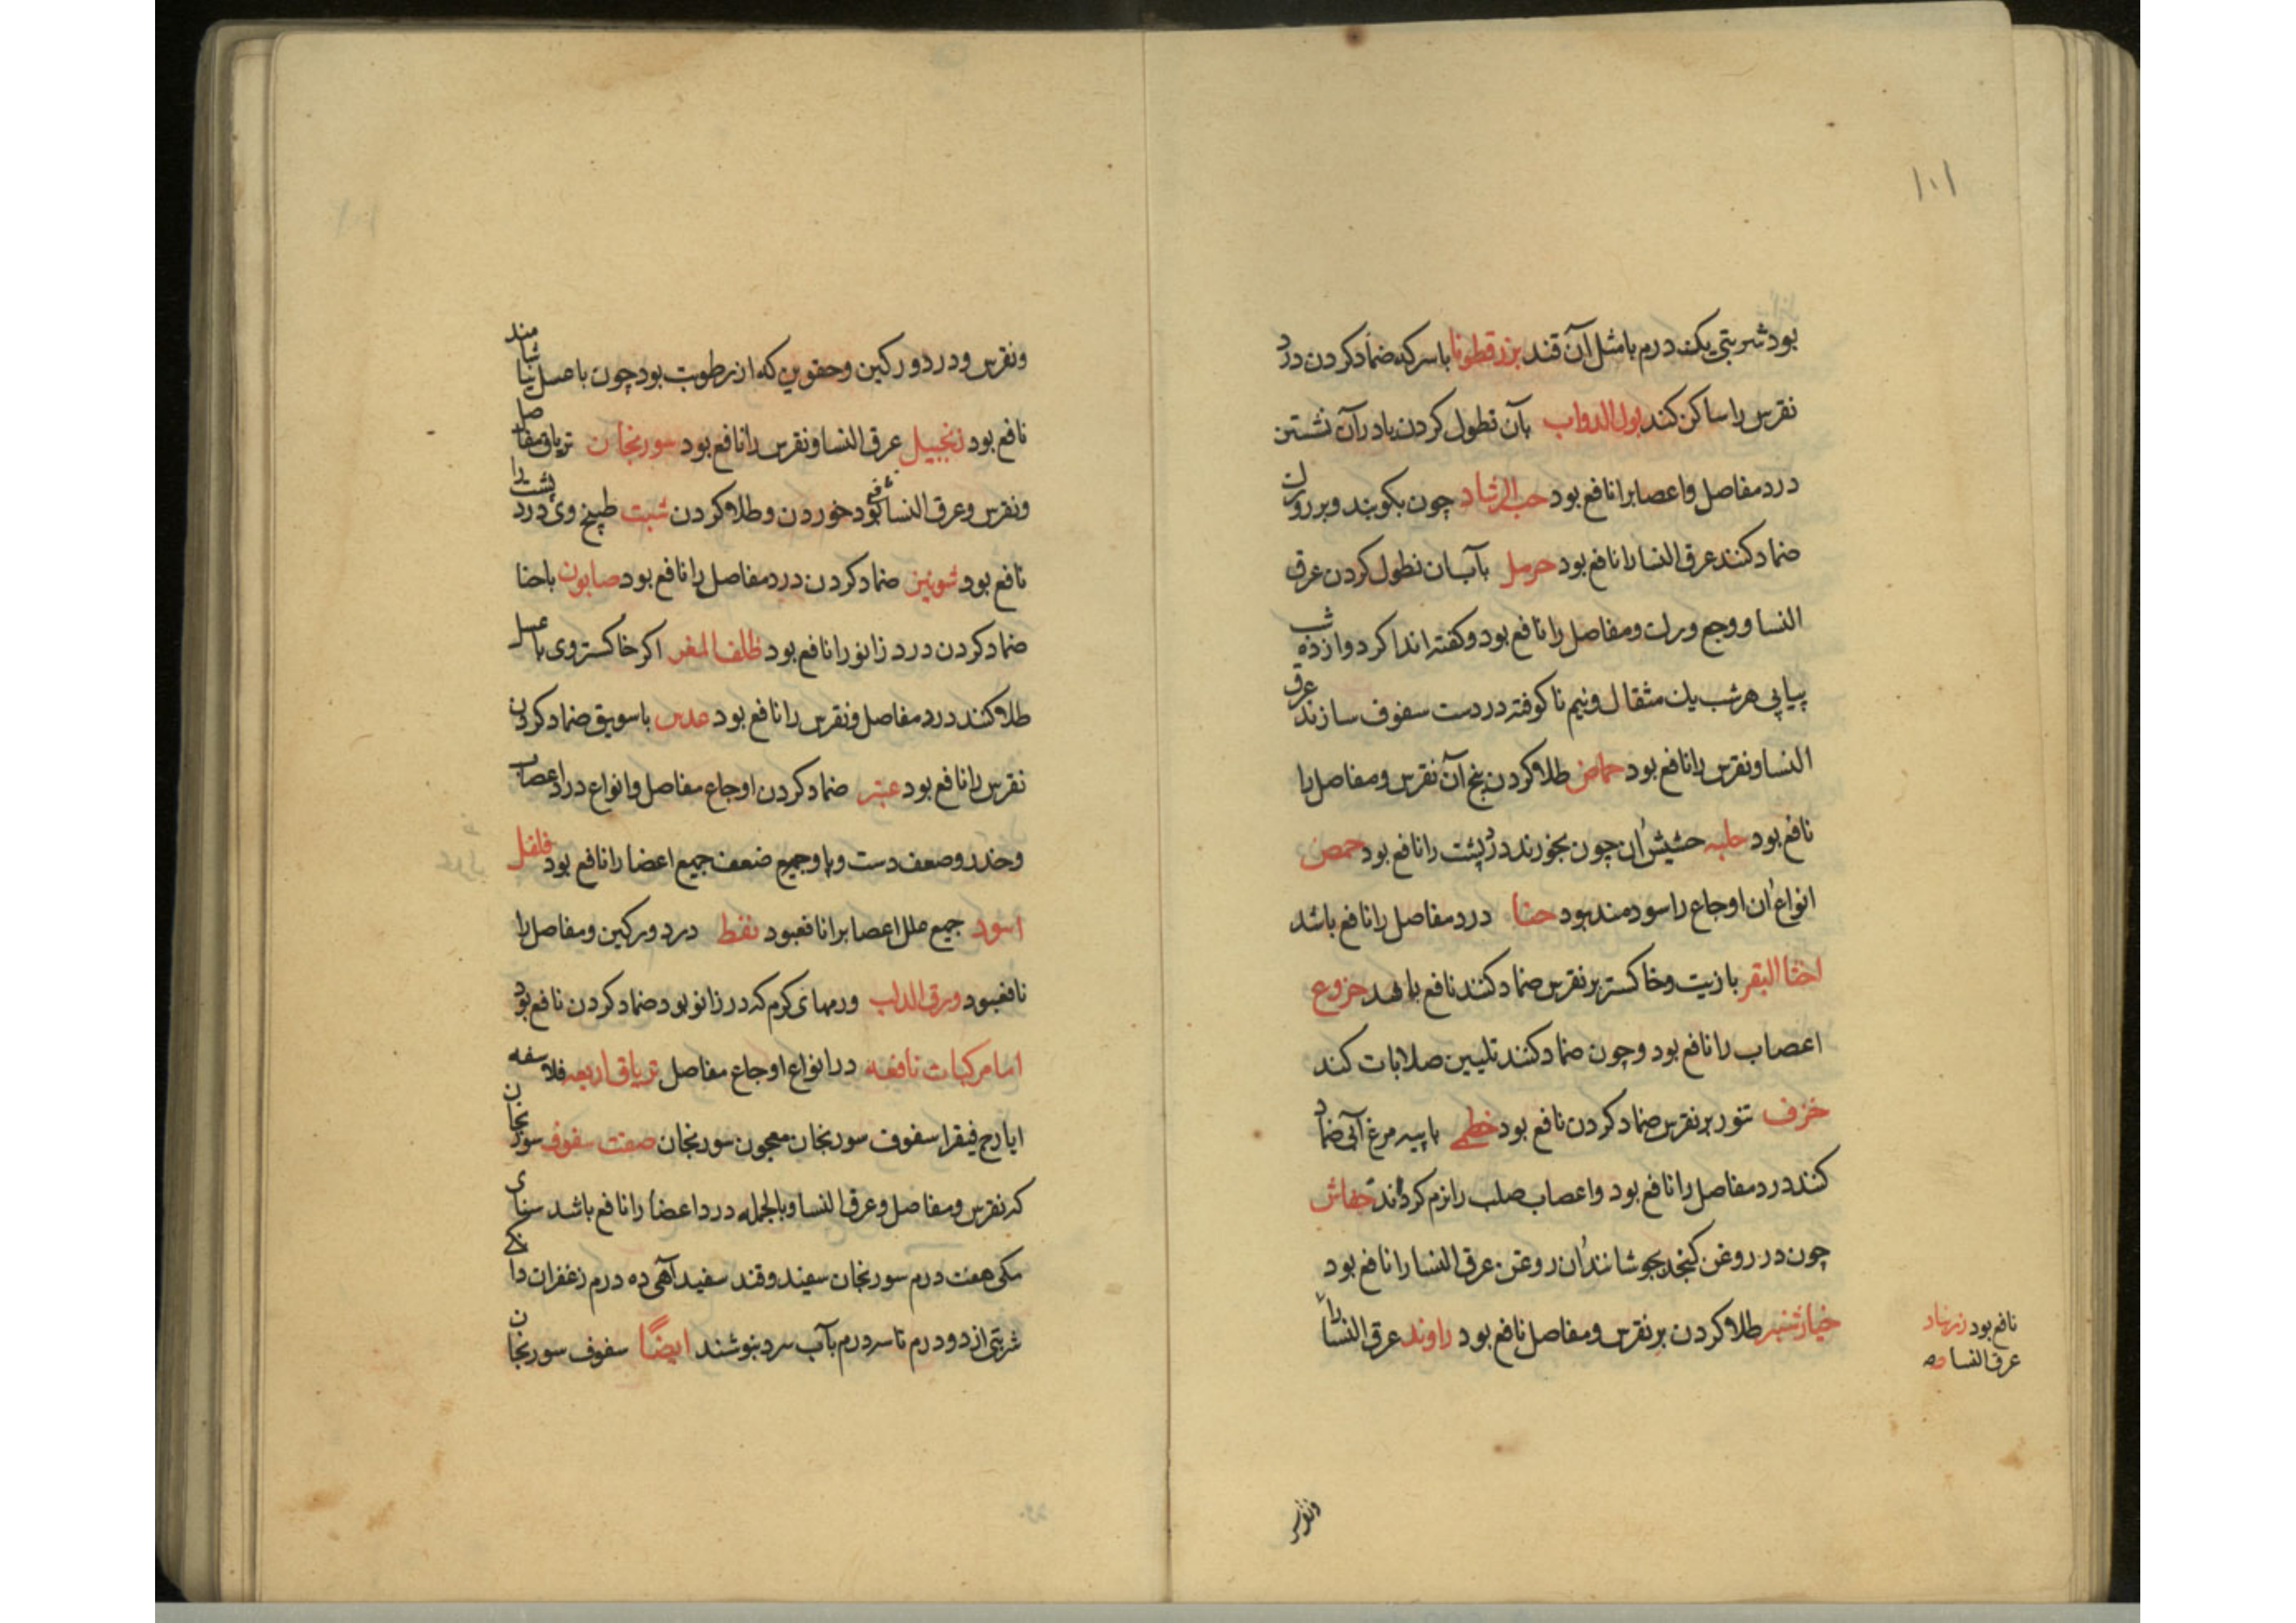 ۱۰۱
بود شربتی یک درم با مثل آن قند بزرقطونا با سرکه ضماد کردن درد
نقرس را ساکن کند بول الدواب بآن نطول کردن یا در آن نشستن
درد مفاصل و اعصابرا نافع بود حب الرشاد چون بکوبند و بر روران
ضماد کنند عرق النسا را نافع بود حرمل بآب آن نطول کردن عرق
النسا و وجع ورك و مفاصل را نافع بود و کفته اند اکر دوازده شب
پیاپی هر شب یك مثقال و نیم ناکوفته در دست سفوف سازند عرق
النسا و نقرس را نافع بود حماض طلا کردن بیخ آن نقرس و مفاصل را
نافع بود حلبه حشیش آن چون بخورند درد پشت را نافع بود حمص
انواع آن اوجاع را سودمند بود حنا درد مفاصل را نافع باشد
اخثا البقر با زیت و خاکستر بر نقرس ضماد کنند نافع باشد خروع
اعصاب را نافع بود و چون ضماد کنند تلیین صلابات کند
خزف تنور بر نقرس ضماد کردن نافع بود خطمی با پیه مرغ آبی ضماد
کنند درد مفاصل را نافع بود و اعصاب صلب را نرم کرداند خفاش
چون در روغن کنجد بجوشانند آن روغن عرق النسا را نافع بود
خیارشنبر طلا کردن بر نقرس و مفاصل نافع بود راوند عرق النسا را
نافع بود زرنباد
عرق النسا
ونقرس
ونقرس و درد ورکین و حقوین که از رطوبت بود چون با عسل بیاشامند
نافع بود زنجبیل عرق النسا و نقرس را نافع بود سورنجان تریاق مفاصل
ونقرس و عرق النسا بود خوردن و طلا کردن شبت طبیخ وی درد پشت را
نافع بود شونیز ضماد کردن درد مفاصل را نافع بود صابون با حنا
ضماد کردن درد زانو را نافع بود ظلف المغر اکر خاکستر وی با عسل
طلا کنند درد مفاصل و نقرس را نافع بود عدس با سویق ضماد کردن
نقرس را نافع بود عنبر ضماد کردن اوجاع مفاصل و انواع درد اعصاب
وخدر و ضعف دست و پا و جمیع ضعف جمیع اعضا را نافع بود فلفل
اسود جمیع علل اعصابرا نافعبود نفط درد ورکین و مفاصل را
نافعبود ورق الدلب ورمهای کرم که در زانو بود ضماد کردن نافع بود
اما مرکبات نافعه در انواع اوجاع مفاصل تریاق اربعه فلاسفه
ایارج فیقرا سفوف سورنجان معجون سورنجان صفت سفوف سورنجان
که نقرس و مفاصل و عرق النسا و بالجمله درد اعضا را نافع باشد سنای
مکی هفت درم سورنجان سفید و قند سفید آهی ده درم زعفران دانکی
شربتی از دو درم تا سه درم بآب سرد بنوشند ایضاً سفوف سورنجان